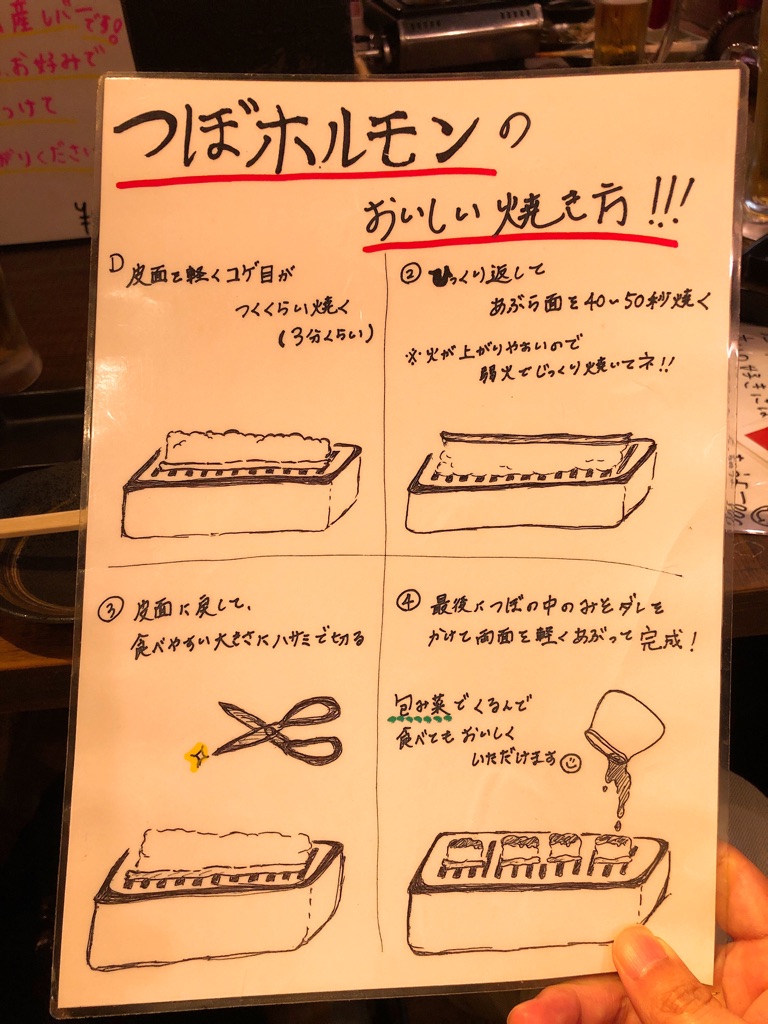 産レバーです!
お好みで
つけて
がりください
¥
つぼホルモンの
おいしい焼き方!!!
① 皮面を軽くコゲ目が
つくくらい焼く
(3分くらい)
② ひっくり返して
あぶら面を40〜50秒焼く
※火が上がりやすいので
弱火でじっくり焼いてネ!!
③ 皮面に戻して、
食べやすい大きさにハサミで切る
④ 最後につぼの中のみそダレを
かけて両面を軽くあぶって完成!
包み菜でくるんで
食べてもおいしく
いただけます